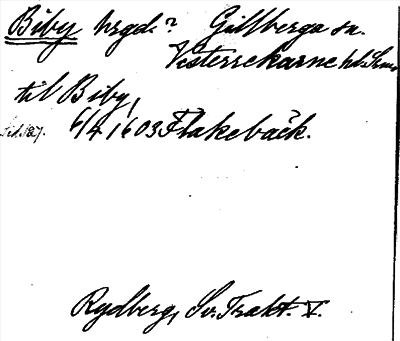 Biby hrgd.? Gillberga sn.
Vesterrekarne hd. Srm.
til Biby,
Sid. 127. 6/4 1603 Flakebäck.
Rydberg, Sv. Trakt. V.